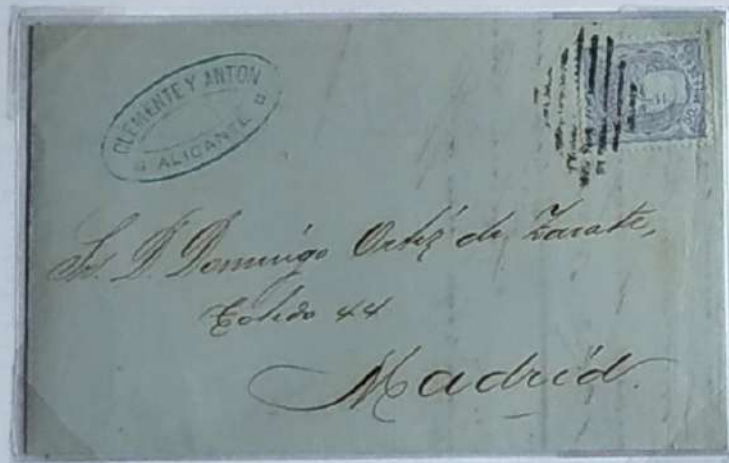 CLEMENTE Y ANTON
ALICANTE
Sr. D. Domingo Ortiz de Zarate,
Toledo 44
Madrid.